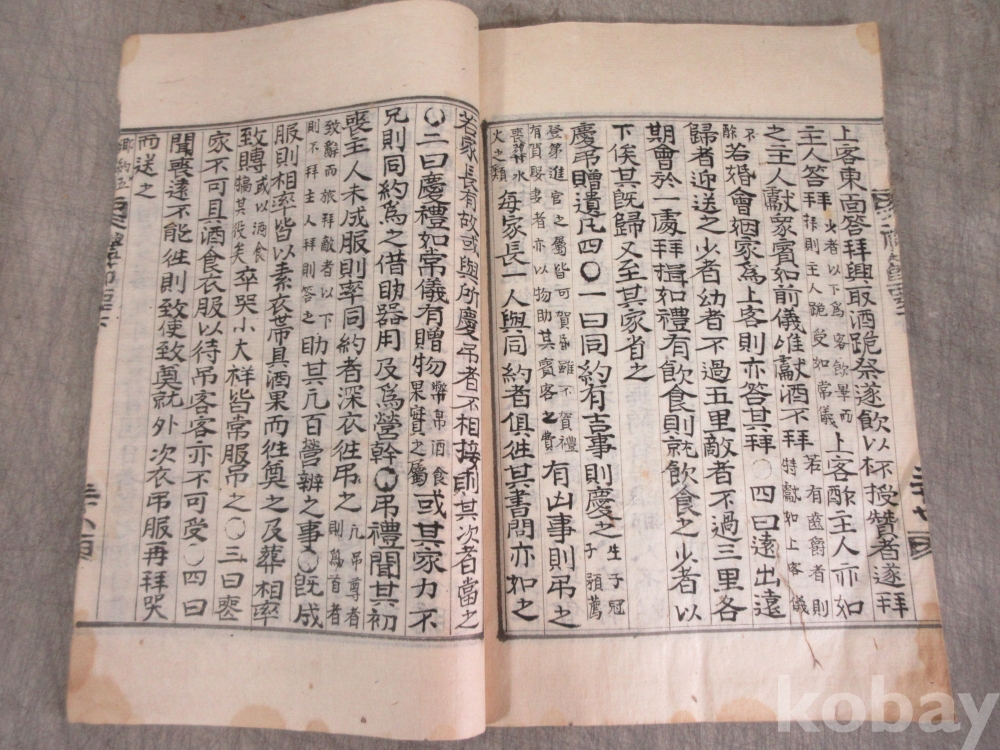 上客東向答拜興取酒跪祭遂飲以杯授贊者遂拜
主人答拜 少者以下爲客飮畢而拜則主人跪受如常儀 上客酢主人亦如
之主人獻衆賓如前儀唯獻酒不拜 若有齒爵者則特獻如上客儀
不酢 若婚會姻家爲上客則亦答其拜○四曰遠出遠
歸者迎送之少者幼者不過五里敵者不過三里各
期會於一處拜揖如禮有飮食則就飮食之少者以
下俟其旣歸又至其家省之
慶弔贈遺凡四○一曰同約有吉事則慶之 生子冠子預薦
登第進官之屬皆可賀昏雖不賀禮有賀娶妻者亦以物助其賓客之費 有凶事則弔之
喪葬水火之類 每家長一人與同約者俱徃其書問亦如之
若家長有故或與所慶吊者不相接則其次者當之
○二曰慶禮如常儀有贈物 幣帛酒食果實之屬 或其家力不
足則同約爲之借助器用及爲營幹○吊禮聞其初
喪主人未成服則率同約者深衣徃吊之 凡吊尊者則爲首者
致辭而旅拜敵者以下則不拜主人拜則答之 助其凡百營辦之事○旣成
服則相率皆以素衣帶具酒果而徃奠之及葬相率
致賻 或以酒食犒其役夫 卒哭小大祥皆常服吊之○三曰喪
家不可具酒食衣服以待吊客客亦不可受○四曰
聞喪遠不能徃則致使致奠就外次衣吊服再拜哭
而送之
鄕約五
kobay